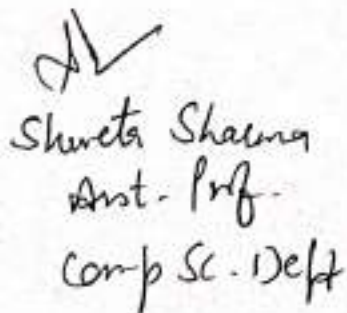 Shweta Sharma
Asst. Prof.
Comp Sc. Dept